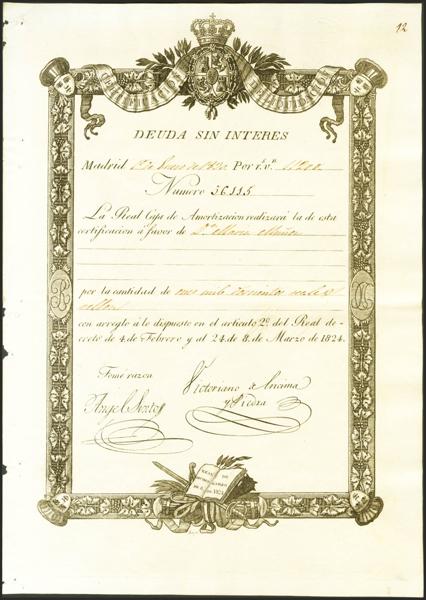 12
DEUDA SIN INTERES
Madrid 1º de Enero de 1830. Por rˢ. vⁿ. 11.200
Numero 36.115
La Real Caja de Amortizacion realizará la de esta
certificacion á favor de Dª Maria Muñoz
por la cantidad de once mil doscientos reales
vellon
con arreglo á lo dispuesto en el articulo 2º. del Real de-
creto de 4. de Febrero y al 24. de 8. de Marzo de 1824.
Tomé razon
Victoriano de Encima
y Piedra
Angel
REAL
DE
DE 8.
DE 1824